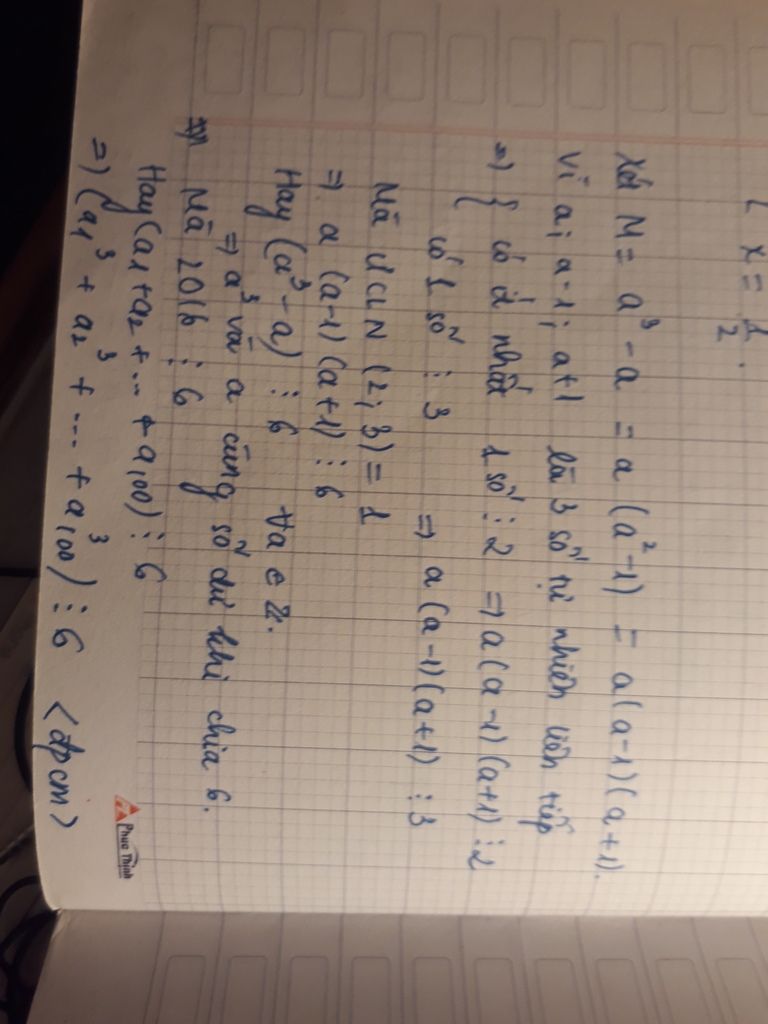 x = 1/2.
Xét M = a³ - a = a(a² - 1) = a(a-1)(a+1).
Vì a; a-1; a+1 là 3 số tự nhiên liên tiếp
=> { có ít nhất 1 số ⋮ 2 => a(a-1)(a+1) ⋮ 2
có 1 số ⋮ 3 => a(a-1)(a+1) ⋮ 3
Mà ƯCLN (2; 3) = 1
=> a(a-1)(a+1) ⋮ 6
Hay (a³ - a) ⋮ 6 ∀a ∈ Z.
=> a³ và a cùng số dư khi chia 6.
Mà 2016 ⋮ 6
Hay (a1 + a2 + ... + a100) ⋮ 6
=> (a1³ + a2³ + ... + a100³) ⋮ 6 <đpcm>
Phuc Thinh